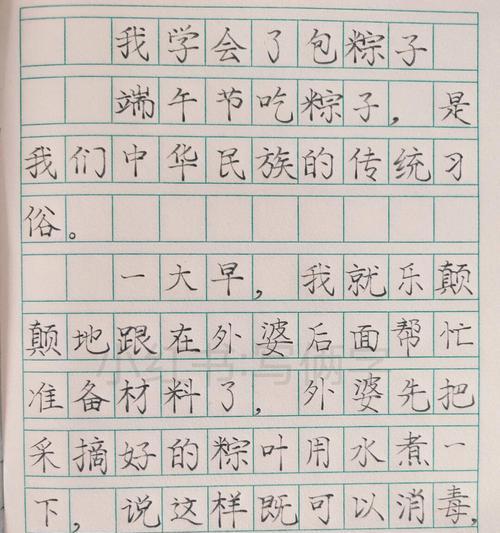 我学会了包粽子
端午节吃粽子，是
我们中华民族的传统习
俗。
一大早，我就乐颠
颠地跟在外婆后面帮忙
准备材料了，外婆先把
采摘好的粽叶用水煮一
下，说这样既可以消毒，
小红书：写俩字